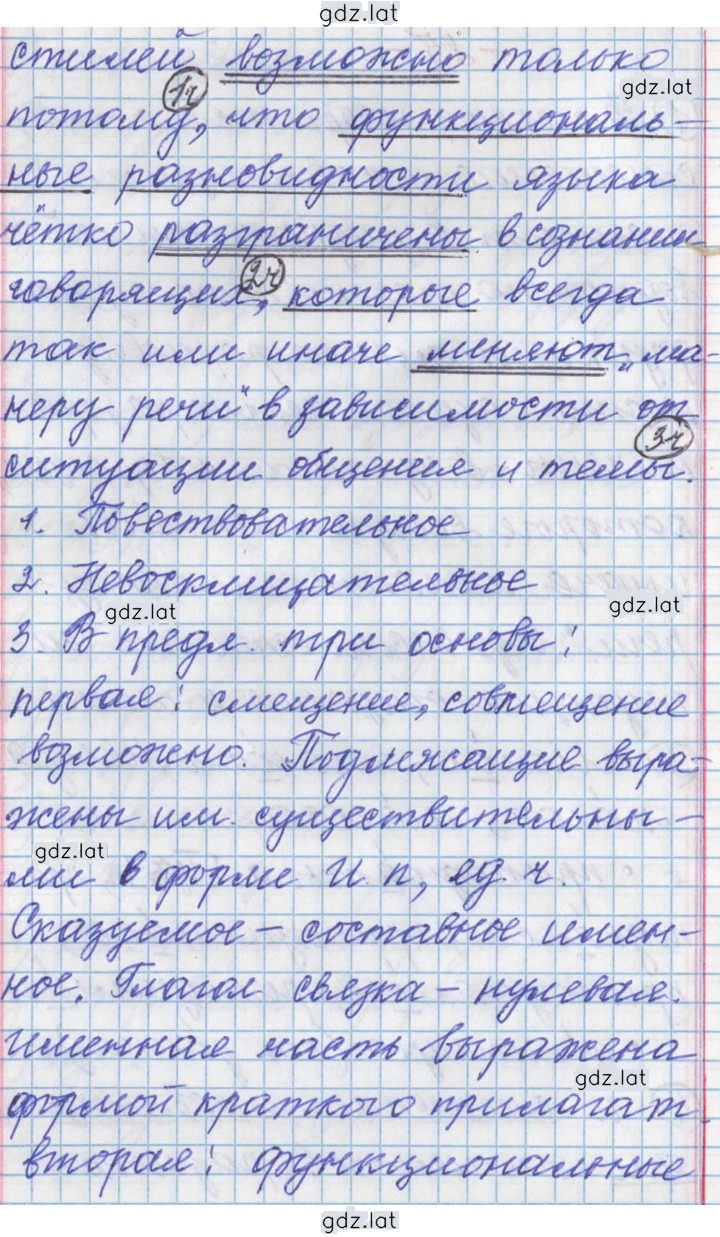 gdz.lat
стилей возможно только
1ч
gdz.lat
потому, что функциональ-
ные разновидности языка
чётко разграничены в сознании
2ч
говорящих, которые всегда
так или иначе меняют „ма-
неру речи" в зависимости от
3ч
ситуации общения и темы.
1. Повествовательное
2. Невосклицательное
gdz.lat
gdz.lat
3 В предл. три основы:
первая: смещение, совмещение
возможно. Подлежащие выра-
жены им. существительны-
gdz.lat
ми в форме И. п, ед. ч.
Сказуемое – составное имен-
ное. Глагол связка – нулевая.
Именная часть выражена
gdz.lat
формой краткого прилагат.
вторая: функциональные
gdz.lat